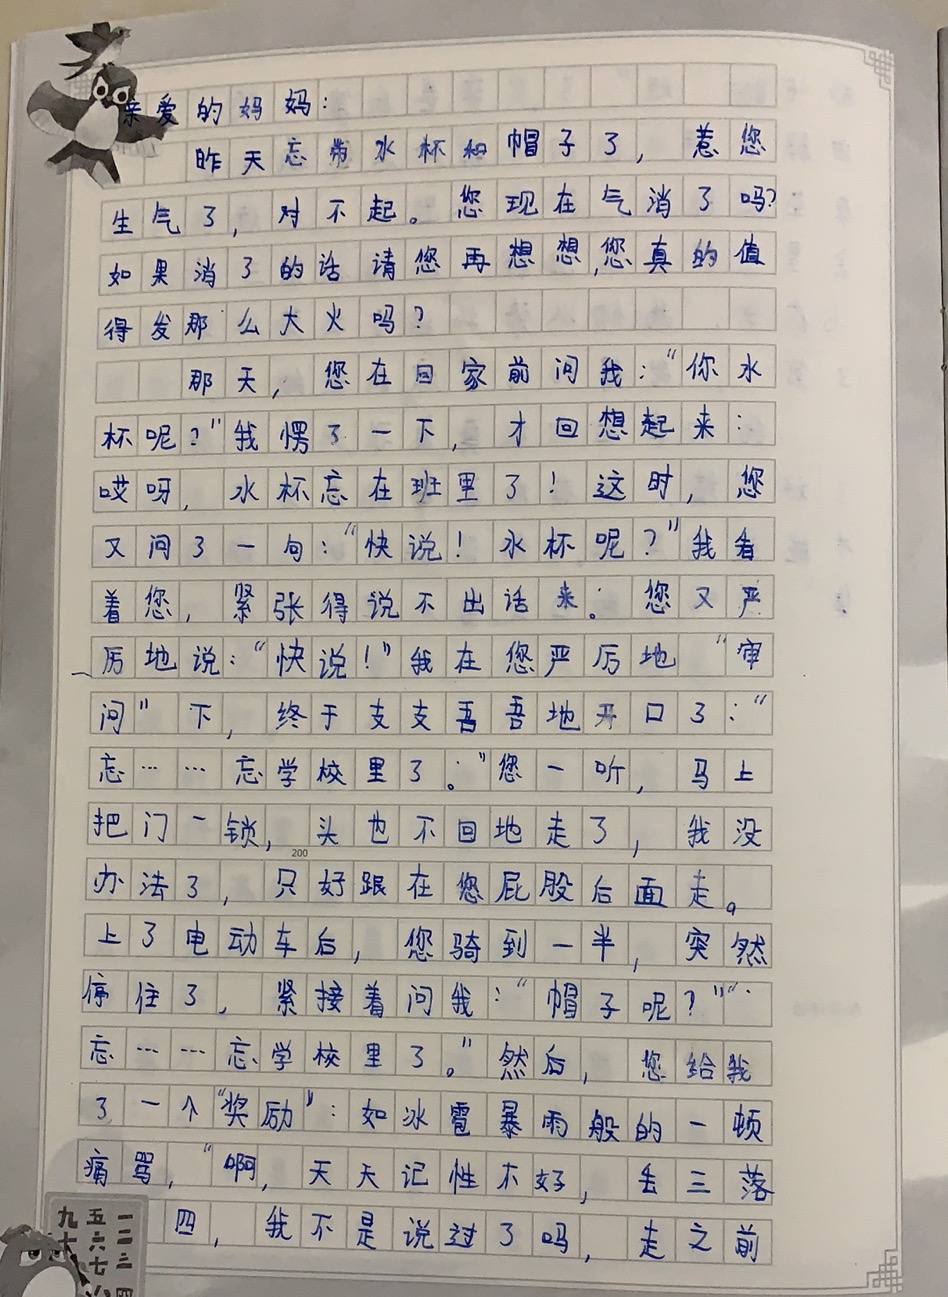 亲爱的妈妈：
昨天忘带水杯和帽子了，惹您
生气了，对不起。您现在气消了吗？
如果消了的话请您再想想，您真的值
得发那么大火吗？
那天，您在回家前问我：“你水
杯呢？”我愣了一下，才回想起来：
哎呀，水杯忘在班里了！这时，您
又问了一句：“快说！水杯呢？”我看
着您，紧张得说不出话来。您又严
厉地说：“快说！”我在您严厉地“审
问”下，终于支支吾吾地开口了：“
忘……忘学校里了。”您一听，马上
把门一锁，头也不回地走了，我没
200
办法了，只好跟在您屁股后面走。
上了电动车后，您骑到一半，突然
停住了，紧接着问我：“帽子呢？”“
忘……忘学校里了。”然后，您给我
了一个“奖励”：如冰雹暴雨般的一顿
痛骂，“啊，天天记性不好，丢三落
四，我不是说过了吗，走之前
一二三四
五六七八
九十